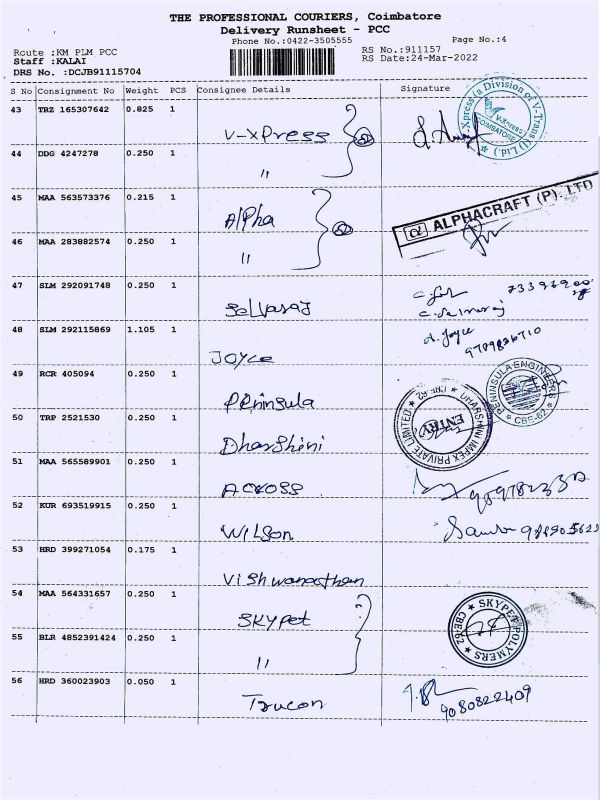 THE PROFESSIONAL COURIERS, Coimbatore
Delivery Runsheet - PCC
Phone No.:0422-3505555
Page No.:4
Route :KM PLM PCC
RS No.:911157
Staff :KALAI
RS Date:24-Mar-2022
DRS No. :DCJB91115704
S No Consignment No Weight PCS Consignee Details Signature
43 TRZ 165307642 0.825 1
V-XPress
V-Xpress (a Division of V-Trans (I) Ltd.)
V-Xpress
COIMBATORE
44 DDG 4247278 0.250 1
"
45 MAA 563573376 0.215 1
Alpha
ALPHACRAFT (P). LTD
46 MAA 283882574 0.250 1
"
47 SLM 292091748 0.250 1
Selvaraj
C. Selvaraj
48 SLM 292115869 1.105 1
JOYCE
A. Joyce
9789836710
49 RCR 405094 0.250 1
Peninsula
PENINSULA ENGINEERS
CBE-62
50 TRP 2521530 0.250 1
Dharshini
DHARSHINI IMPEX PRIVATE LIMITED
CBE-62
ENTRY
51 MAA 565589901 0.250 1
ACROSS
52 KUR 693519915 0.250 1
WILSON
53 HRD 399271054 0.175 1
Vishwanathan
54 MAA 564331657 0.250 1
SKYPet
SKYPET POLYMERS
CBE-62
55 BLR 4852391424 0.250 1
"
56 HRD 360023903 0.050 1
Trucon
9080822409